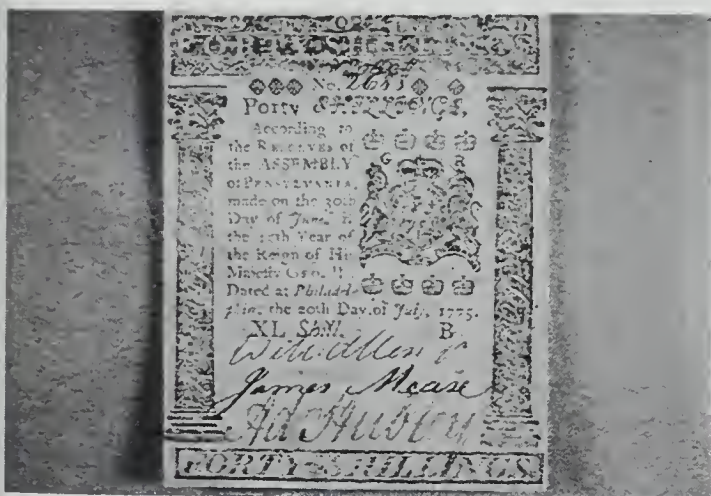 No. 2683
Forty SHILLINGS,
According to
the RESOLVES of
the ASSEMBLY
of PENSYLVANIA,
made on the 30th
Day of June in
the 15th Year of
the Reign of His
Majesty GEO. III.
Dated at Philadel-
phia, the 20th Day of July, 1775.
G R
XL Shill. B
Will Allen Jr
James Mease
Ad Hubley
FORTY SHILLINGS.